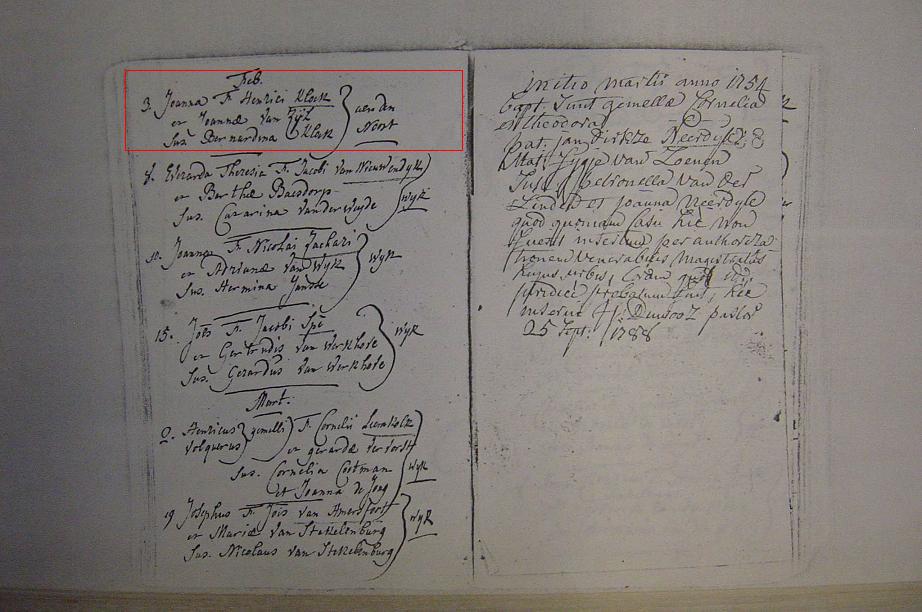 Feb.
3. Joanna F. Henrici Klock
et Joannæ van Eÿk
Sus. Bernardina Klock
aen den
Noort
8. Everarda Theresia F. Jacobi van Nieuwendyk
et Berthæ Baesdorp
Sus. Catarina vander Weyde
Wyk
11. Joannes F. Nicolai Zachari
et Adrianæ van Wyk
Sus. Hermina Janssе
Wyk
15. Jois F. Jacobi Spé
et Gertrudis van Werkhove
Sus. Gerardus van Werkhove
Wyk
Mart.
Henricus gemelli F. Cornelii
Volquerus et gerardæ ter Vorst
Sus. Cornelia Cootman
et Joanna de Jong
Wyk
19 Josephus F. Jois van Amersfoort
et Mariæ van Stekelenburg
Sus. Nicolaus van Stekelenburg
Wyk
initio martii anno 1754
bapt. sunt gemellæ Cornelia
et theodora
pat. jan dirkze Neerdyk
Mat. fygje van Loenen
Sus. petronella van der
Linden et joanna Neerdyk
quod quoniam casu hic non
fuerat insertum per authoriza
tionem venerabilis magistratus
hujus urbis,
juridice probatum fuit, hic
inserui H: pastor
25 Sept. 1788